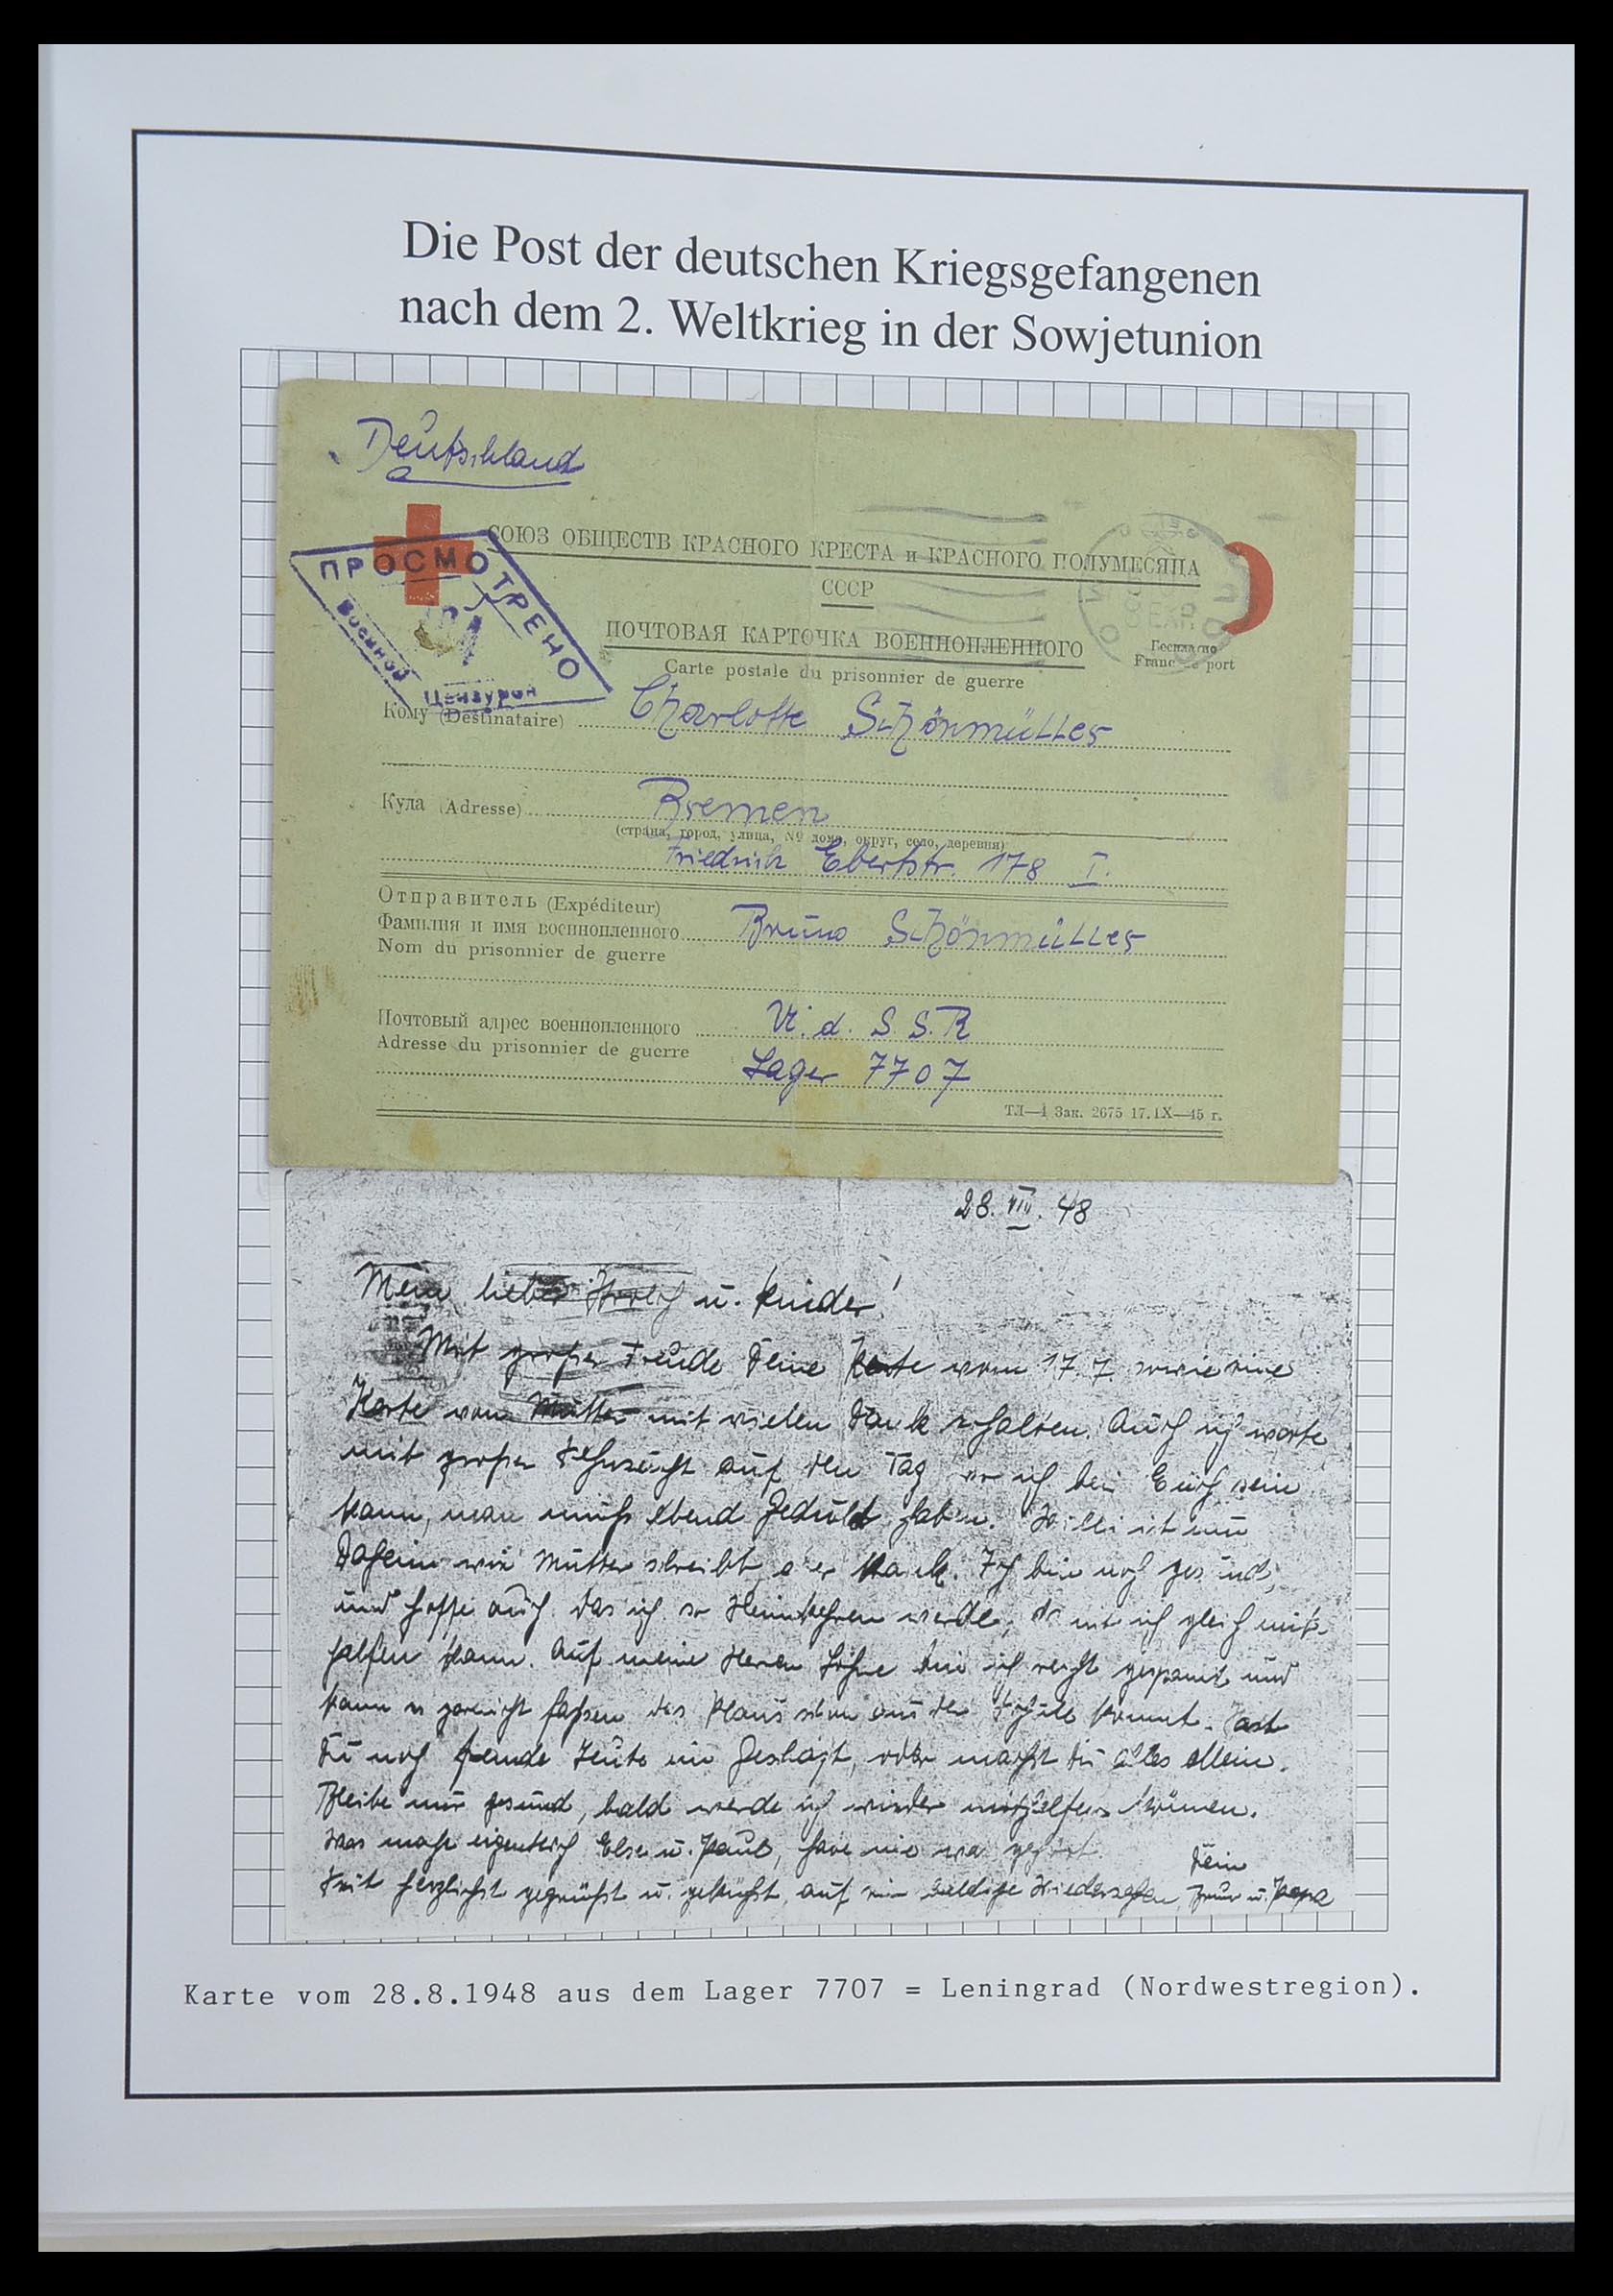 Die Post der deutschen Kriegsgefangenen
nach dem 2. Weltkrieg in der Sowjetunion
Deutschland
СОЮЗ ОБЩЕСТВ КРАСНОГО КРЕСТА и КРАСНОГО ПОЛУМЕСЯЦА
СССР
ПРОСМОТРЕНО
Военной
Цензурой
ПОЧТОВАЯ КАРТОЧКА ВОЕННОПЛЕННОГО
Carte postale du prisonnier de guerre
Бесплатно
Franc de port
Кому (Destinataire) Charlotte Schönmüller
Куда (Adresse) Bremen
(страна, город, улица, № дома, округ, село, деревня)
Friedrich Ebertstr. 178 I.
Отправитель (Expéditeur)
Фамилия и имя военнопленного Bruno Schönmüller
Nom du prisonnier de guerre
Почтовый адрес военнопленного U. d. S. S. R
Adresse du prisonnier de guerre
Lager 7707
ТЛ—1 Зак. 2675 17.IX—45 г.
28. VIII. 48
Mein lieber u. Kinder!
Mit großer Freude Deine Karte vom 17.7 sowie eine
Karte von Mutter mit vielen Dank erhalten. Auch ich warte
mit großer Sehnsucht auf den Tag wo ich bei Euch sein
kann, man muß ebend Geduld haben. Willi ist nun
Daheim wie Mutter schreibt, krank. Ich bin noch gesund,
und hoffe auch das ich so Heimkehren werde, ich gleich mit-
helfen kann. Auf meine Herren Söhne bin ich recht gespannt und
kann es garnicht fassen das Klaus schon aus der Schule kommt. Hast
Du noch fremde Leute im Geschäft, oder machst Du alles allein.
Bleibe nur gesund, bald werde ich wieder mithelfen können.
Was macht eigentlich Else u. Paul, habe nie was gehört.
Seit herzlichst gegrüßt u. geküßt, auf ein Wiedersehen, Dein
Bruno u. Papa
Karte vom 28.8.1948 aus dem Lager 7707 = Leningrad (Nordwestregion).